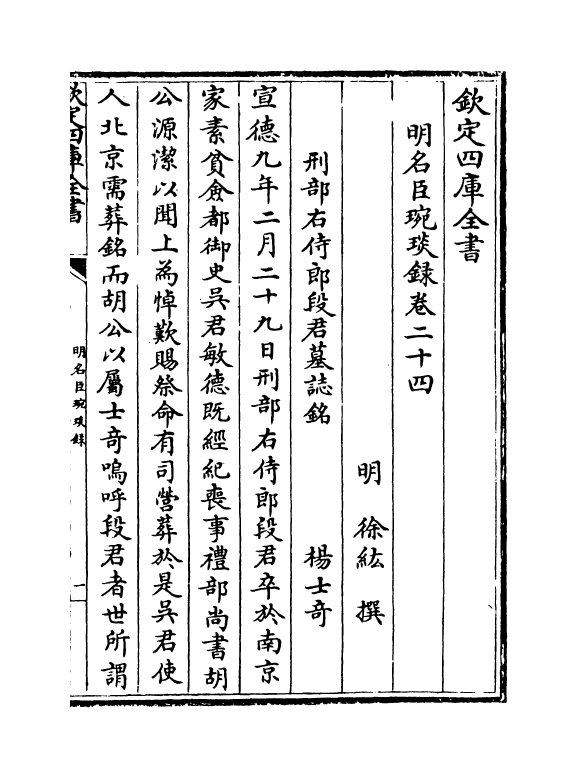 欽定四庫全書
明名臣琬琰録卷二十四
明 徐紘 撰
刑部右侍郎段君墓誌銘 楊士竒
宣德九年二月二十九日刑部右侍郎段君卒於南京
家素貧僉都御史吳君敏德既經紀喪事禮部尚書胡
公源潔以聞上為悼歎賜祭命有司營葬於是吳君使
人北京需葬銘而胡公以屬士竒嗚呼段君者世所謂
欽定四庫全書
明名臣琬琰録
一